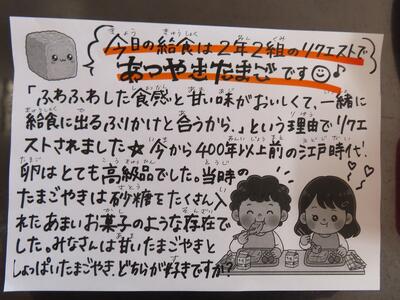 今日の給食は2年2組のリクエストで
あつやきたまごです☺♪
「ふわふわした食感と甘い味がおいしくて、一緒に
給食に出るふりかけと合うから。」という理由でリクエ
ストされました★今から400年以上前の江戸時代、
卵はとても高級品でした。当時の
たまごやきは砂糖をたくさん入
れたあまいお菓子のような存在で
した。みなさんは甘いたまごやきと
しょっぱいたまごやき、どちらが好きですか?